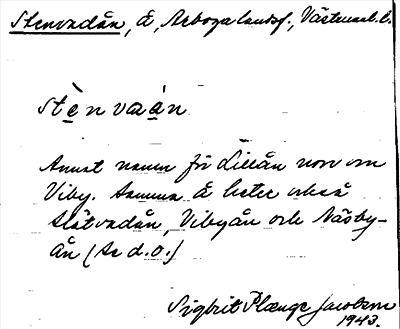 Stenvadån, å, Arboga landsf., Västmanl. l.
stènvaán
Annat namn för Lillån norr om
Viby. Samma å heter också
Slätvadån, Vibyån och Näsby-
ån (Se d.o.)
Sigbrit Plænge Jacobson
1943.